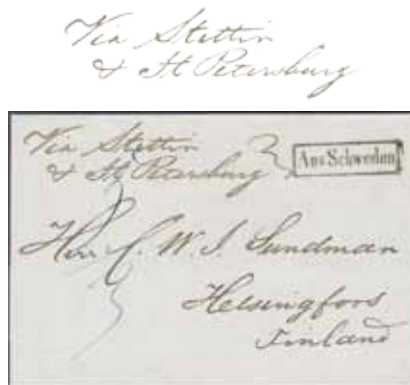 Via Stettin
& St Petersburg
Via Stettin
& St Petersburg
Aus Schweden
Herr C. W. I. Sundman
Helsingfors
Finland